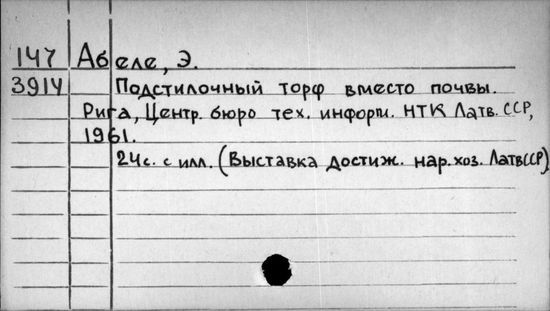 147 Абеле, Э.
3914 Подстилочный торф вместо почвы.
Рига, Центр. бюро тех. информ. НТК Латв. ССР,
1961.
24с. с илл. (Выставка достиж. нар. хоз. ЛатвССР)